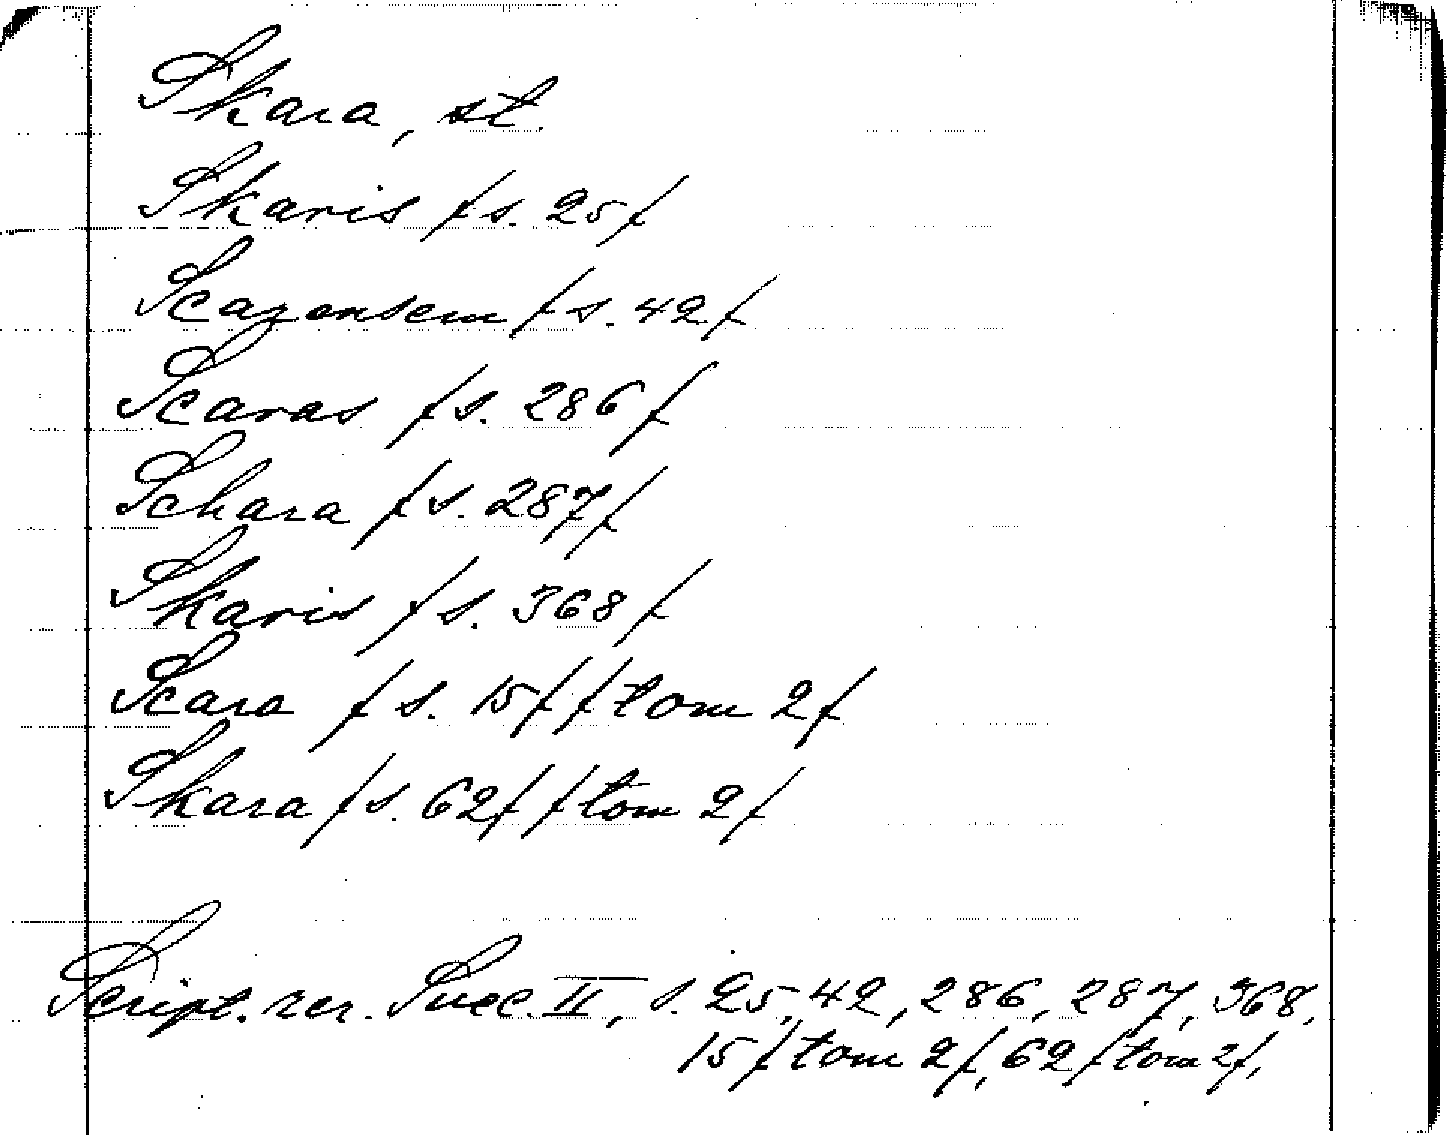 Skara, st.
Skaris /s. 25/
Scarensem /s. 42/
Scaras /s. 286/
Schara /s. 287/
Skaris /s. 368/
Scara /s. 15/ /tom 2/
Skara /s. 62/ /tom 2/
Script. rer. Suec. II, s. 25, 42, 286, 287, 368,
15 /tom 2/, 62 /tom 2/,